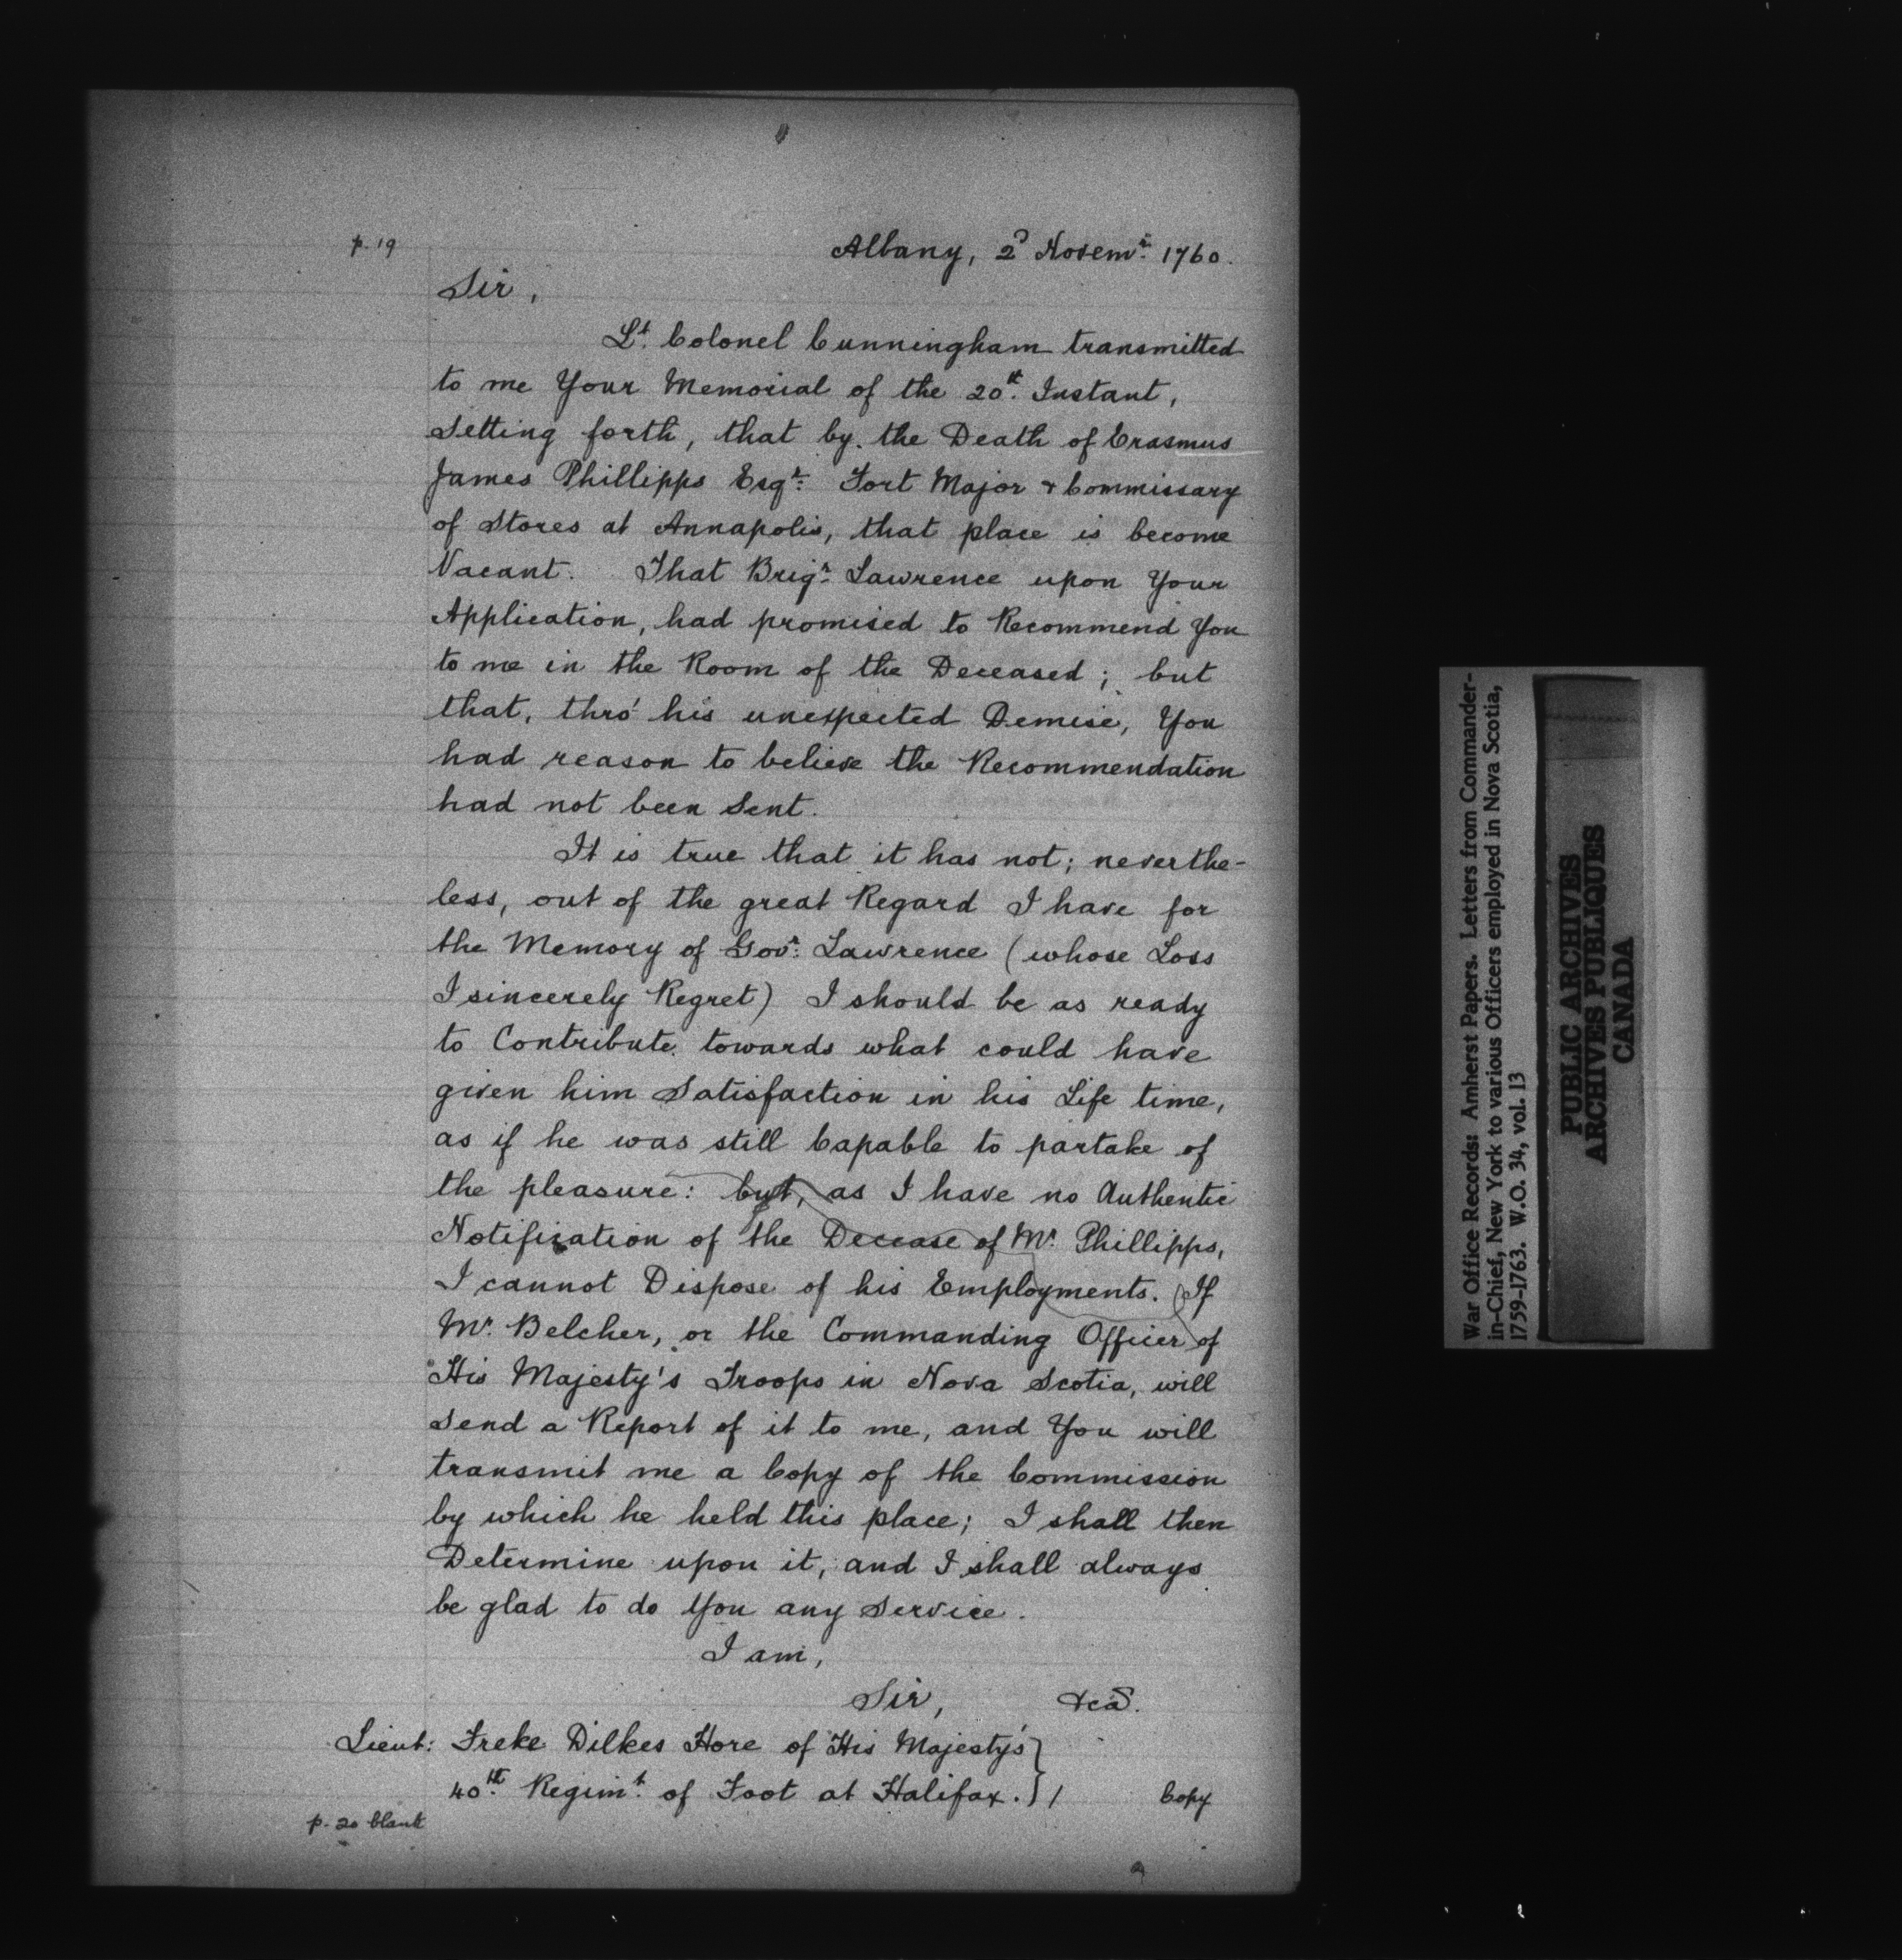 p. 19
Albany, 2d Novemr. 1760.
Sir,
Lt. Colonel Cunningham transmitted
to me Your Memorial of the 20th. Instant,
Setting forth, that by the Death of Erasmus
James Phillipps Esqr. Fort Major & Commissary
of Stores at Annapolis, that place is become
Vacant. That Brigr. Lawrence upon Your
Application, had promised to Recommend You
to me in the Room of the Deceased; but
that, thro' his unexpected Demise, You
had reason to believe the Recommendation
had not been Sent.
It is true that it has not; neverthe-
less, out of the great Regard I have for
the Memory of Govr. Lawrence (whose Loss
I sincerely Regret) I should be as ready
to Contribute towards what could have
given him Satisfaction in his Life time,
as if he was still Capable to partake of
the pleasure: but, as I have no Authentic
Notification of the Decease of Mr. Phillipps,
I cannot Dispose of his Employments. If
Mr. Belcher, or the Commanding Officer of
His Majesty's Troops in Nova Scotia, will
Send a Report of it to me, and You will
transmit me a Copy of the Commission
by which he held this place; I shall then
Determine upon it, and I shall always
be glad to do You any Service.
I am,
Sir, &ca.
Lieut: Freke Dilkes Hore of His Majesty's }
40th. Regimt. of Foot at Halifax. } / Copy
p. 20 blank
War Office Records: Amherst Papers. Letters from Commander-
in-Chief, New York to various Officers employed in Nova Scotia,
1759-1763. W.O. 34, vol. 13
PUBLIC ARCHIVES
ARCHIVES PUBLIQUES
CANADA